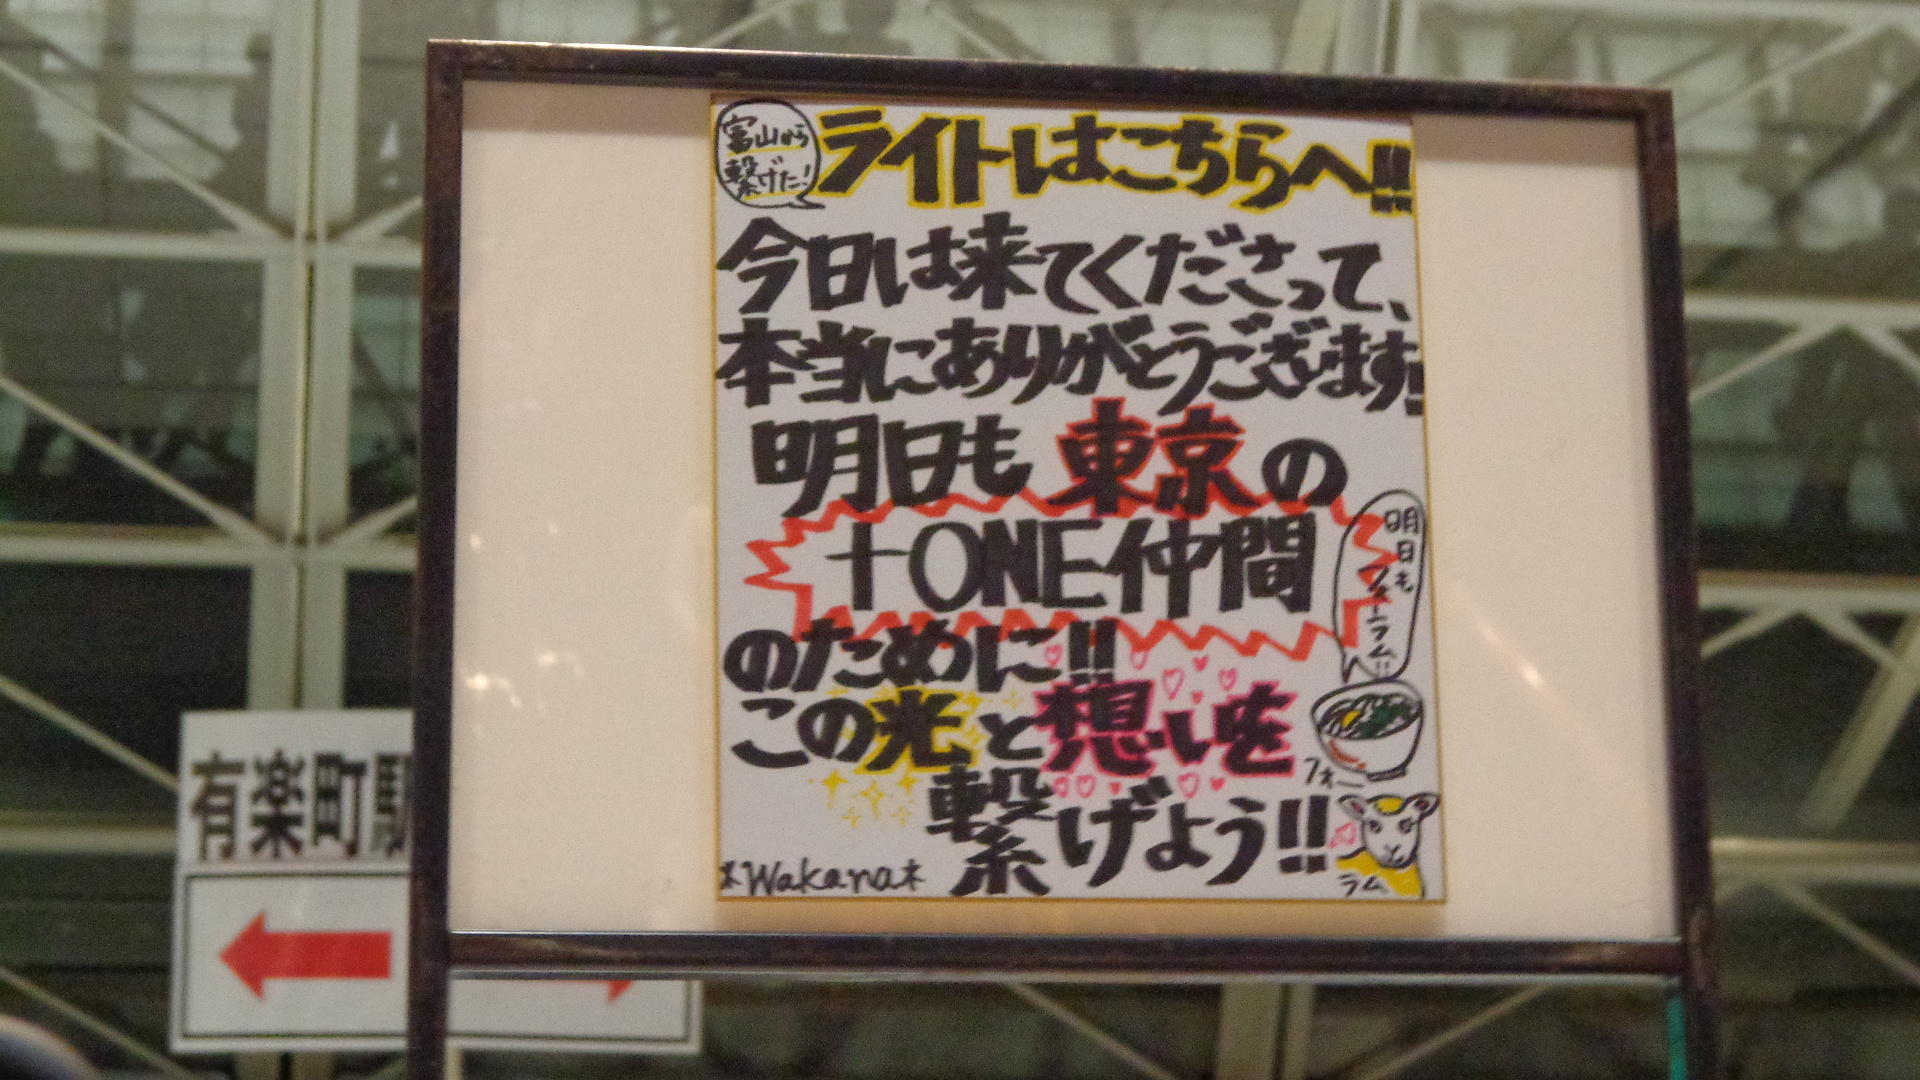 富山から
繋げた!
ライトはこちらへ!!
今日は来てくださって、
本当にありがとうございます!!
明日も東京の
+ONE仲間
のために!!
この光と想いを
繋げよう!!
明日も
フォーラム!!
フォー
ラム
*Wakana*
有楽町駅